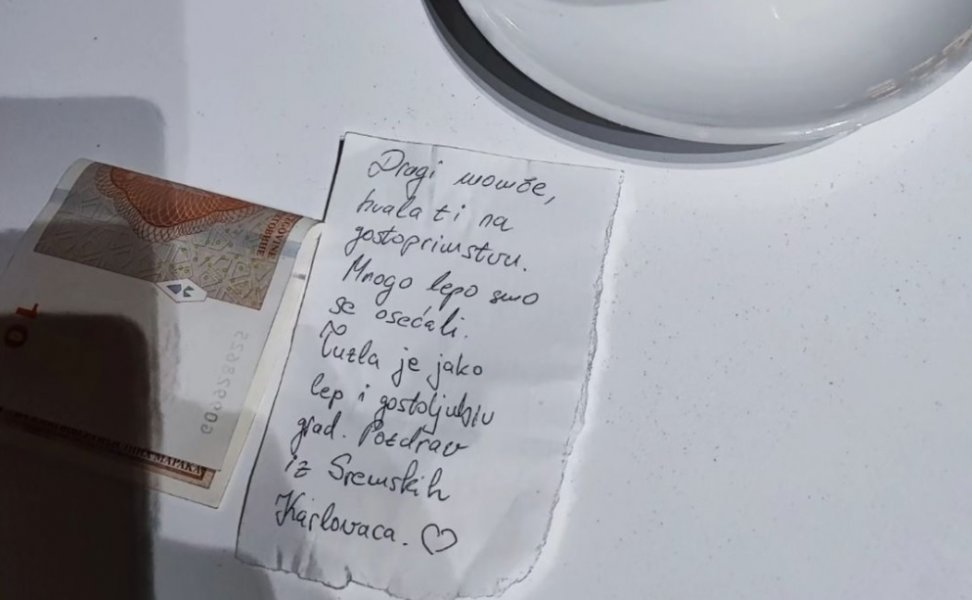 Dragi momče,
hvala ti na
gostoprimstvu.
Mnogo lepo smo
se osećali.
Tuzla je jako
lep i gostoljubiv
grad. Pozdrav
iz Sremskih
Karlovaca. ♡
GOVINE
МАРАКА